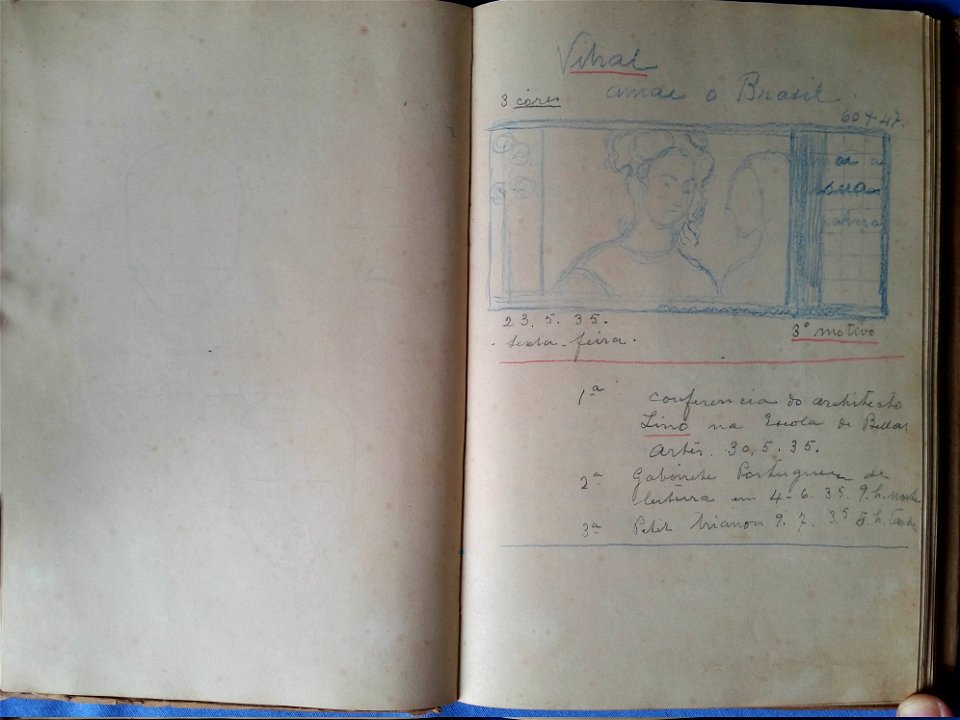 Vitral
amae o Brasil.
3 côres
60 + 47.
sua
23. 5. 35.
3º motivo
sexta-feira.
1ª conferencia do architecto
Lino na Escola de Bellas
Artes. 30. 5. 35.
2ª Gabinete Portuguez de
leitura em 4-6. 35. 9. h. noite
3ª Petit trianon 9. 7. 35 5. h. tarde